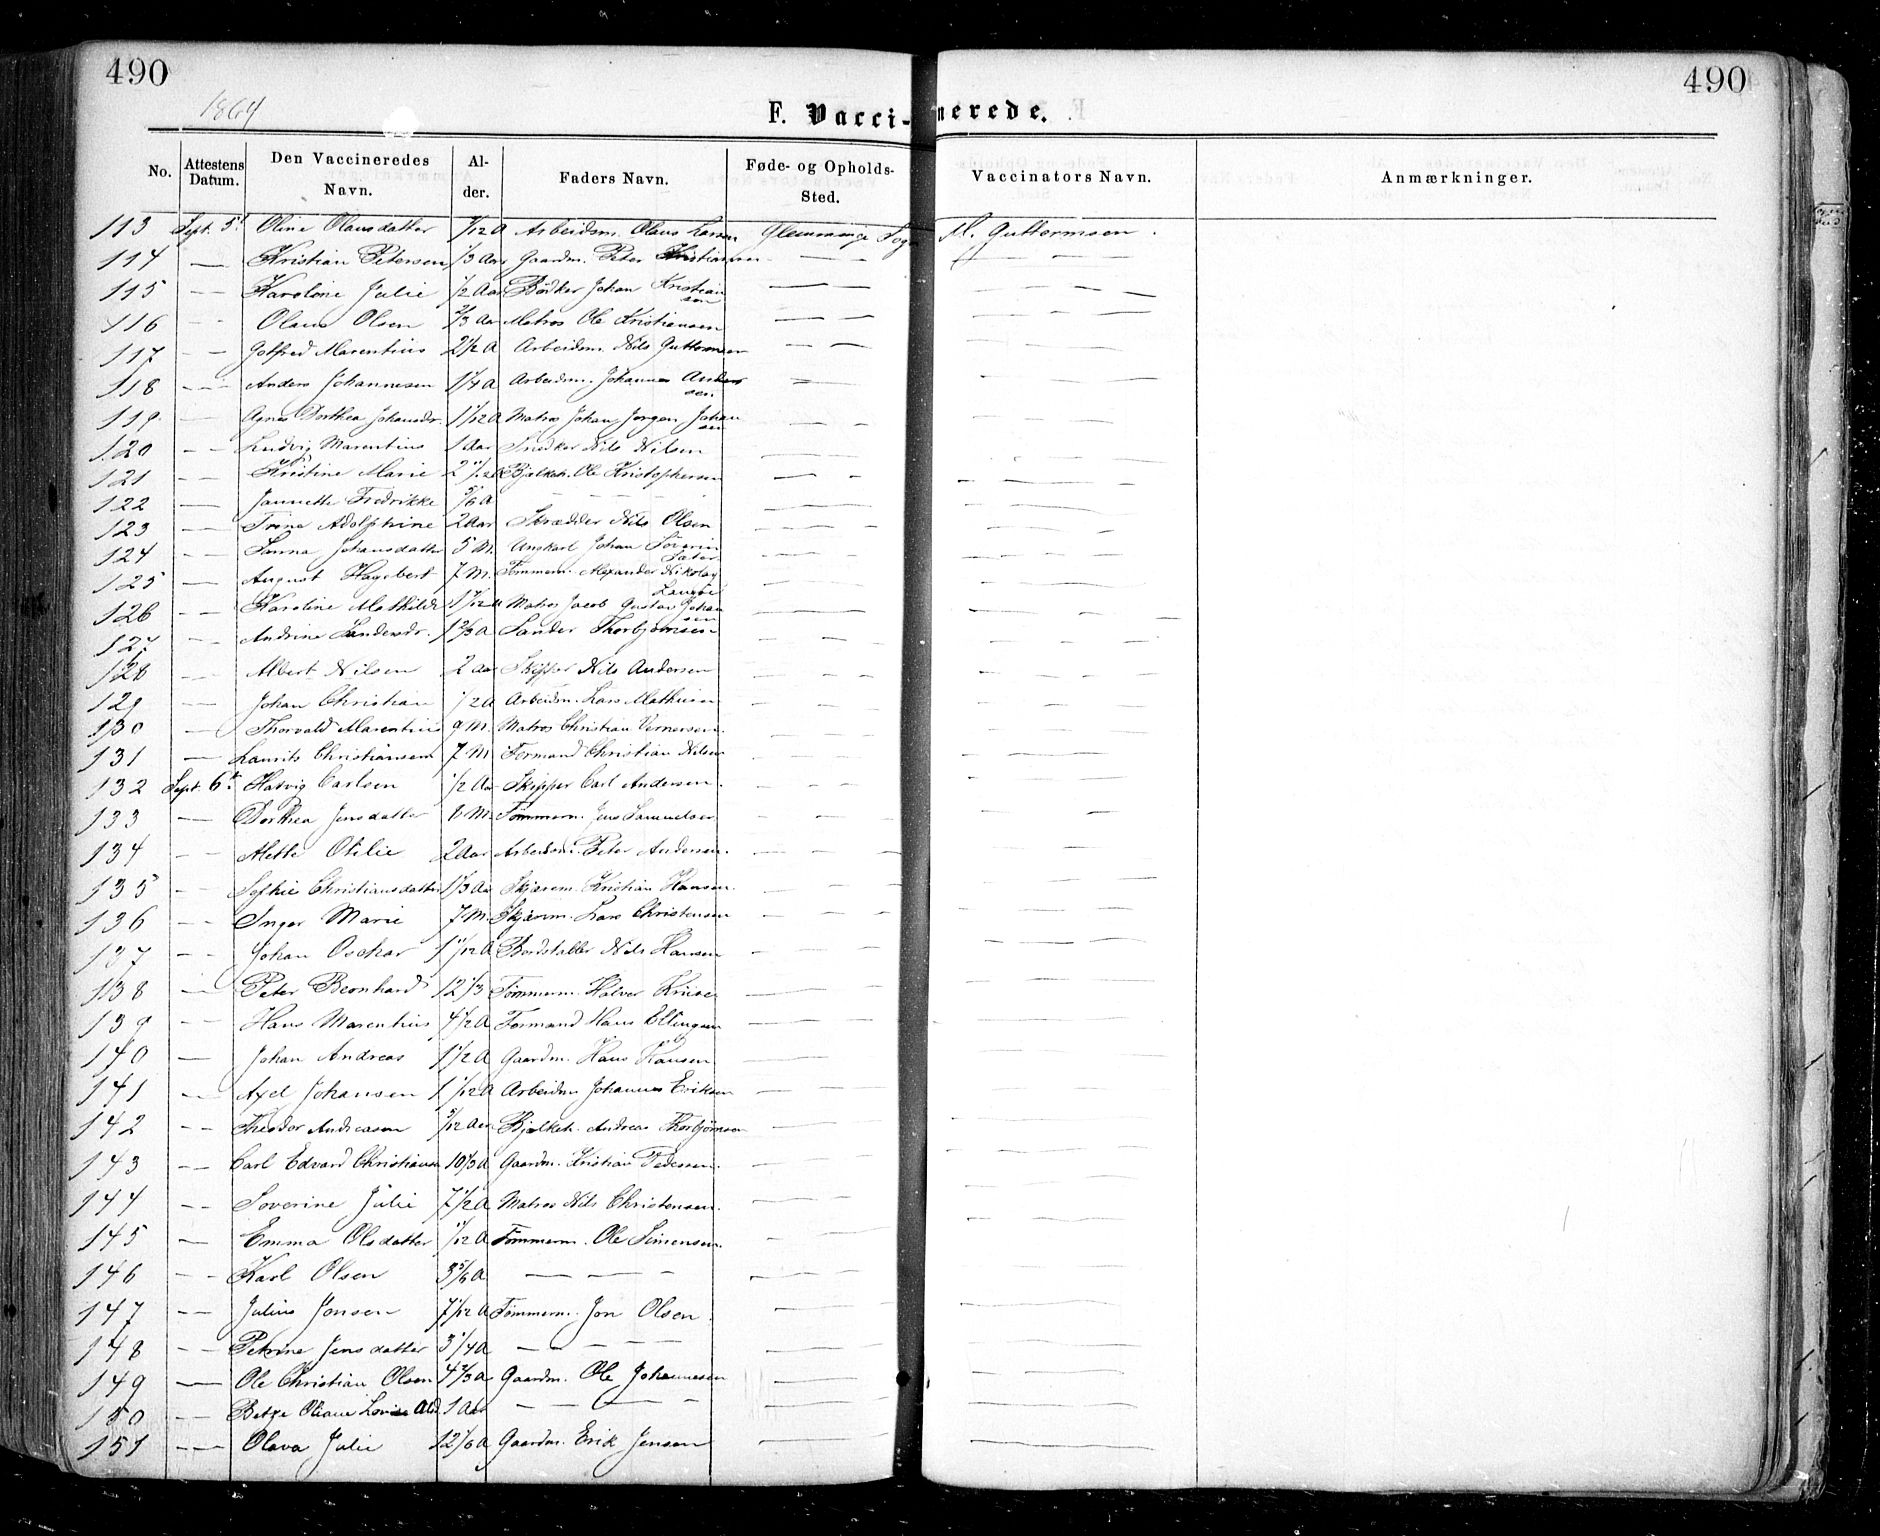 490 490
1864
F. Vacci- nerede.
No. Attestens Datum. Den Vaccineredes Navn. Al- der. Faders Navn. Føde- og Opholds- Sted. Vaccinators Navn. Anmærkninger.
113 Sept. 5t Oline Olausdatter 7/12 A Arbeidsm. Olaus Larsen Glemminge Sogn M. Guttormsen.
114 — Kristian Petersen 1/3 Aar Gaardm. Peter Kristiansen — — — — — —
115 — — Karoline Julie 1/2 Aar Bødker Johan Kristian
sen
116 — — Olaus Olsen 2/3 Aar Matros Ole Kristiansen
117 — — Gotfred Marentius 2 1/2 A Arbeidsm. Nils Guttormsen
118 — — Anders Johannesen 1 1/4 A Arbeidsm. Johannes Anders
sen.
119 — Agnes Dorthea Johansdr. 1 1/12 A Matros Johan Jørgen Johan
sen
120 — — Ludvig Marentius 1 Aar Snedker Nils Nilsen
121 — — Kristine Marie 2 11/12 A Bjelkeh. Ole Kristophersen
122 — Jannette Fredrikke 5/6 A — — — —
123 — — Trine Adolphine 2 Aar Skrædder Nils Olsen
124 — — Sanna Johansdatter 5 M. Ungkarl Johan Søverin
Sæter
125 — August Hagbert 7 M. Tømmerm. Alexander Nikolay
126 — — Karoline Mathilde 1 7/12 A Matros Jacob Gustav Johan
sen
127 — Andrine Sandersdr. 1 2/3 A Sander Thorbjørnsen
128 — — Albert Nilsen 2 Aar Skipper Nils Andersen
129 — Johan Christian 1/2 A Arbeidsm. Lars Mathisen
130 — Thorvald Marentius 9 M. Matros Christian Vernersen.
131 — Laurits Christiansen 7 M Formand Christian Nilsen
132 Sept. 6t Hatvig Carlsen 1/2 Aar Skipper Carl Andersen.
133 — Dorthea Jensdatter 8 M. Tømmerm. Jens Samuelsen
134 — — Mette Otilie 2 Aar Arbeidsm. Peter Andersen.
135 — — Sophie Christiansdatter 1 1/3 Aar Skjærem. Kristian Hansen.
136 — — Inger Marie 7 M. Skjærem. Lars Christensen
137 — — Johan Oschar 1 11/12 A Bordstabler Nils Hansen
138 — Peter Bernhard 12 1/3 Tømmerm. Halver Kruse
139 — — Hans Marentius 4 1/2 A Formand Hans Ellingsen
140 — — Johan Andreas 1 1/2 A Gaardm. Hans Hansen
141 — Axel Johansen 1 1/12 A Arbeidsm. Johannes Eriksen
142 — — Theodor Andreasen 5/12 Aar Bjelkeh. Andreas Thorbjørnsen
143 — — Carl Edvard Christiansen 10 1/3 A Gaardm. Kristian Pedersen.
144 — — Soverine Julie 7 1/2 A Matros Nils Christensen.
145 — — Emma Olsdatter 11/12 A Tømmerm. Ole Simensen.
146 — — Karl Olsen 3 5/6 A — — — —
147 — — Julius Jonsen 7 1/12 A Tømmerm. Jon Olsen.
148 — — Petrine Jensdatter 3 1/4 A — — — —
149 — Ole Christian Olsen 4 2/3 A Gaardm. Ole Johannesen
150 — — Betze Oliane Lovise Old. 1 Aar — — — —
151 — — Olava Julie 12 1/6 A Gaardm. Erik Jensen